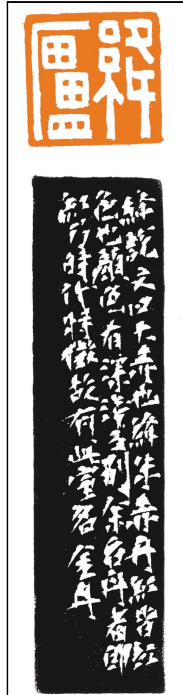 絳廬
絳說文曰大赤也絳朱赤丹紅皆紅
色也顏色有深淺之別余名丹者即
紅乃時代特徵故有此室名 金丹